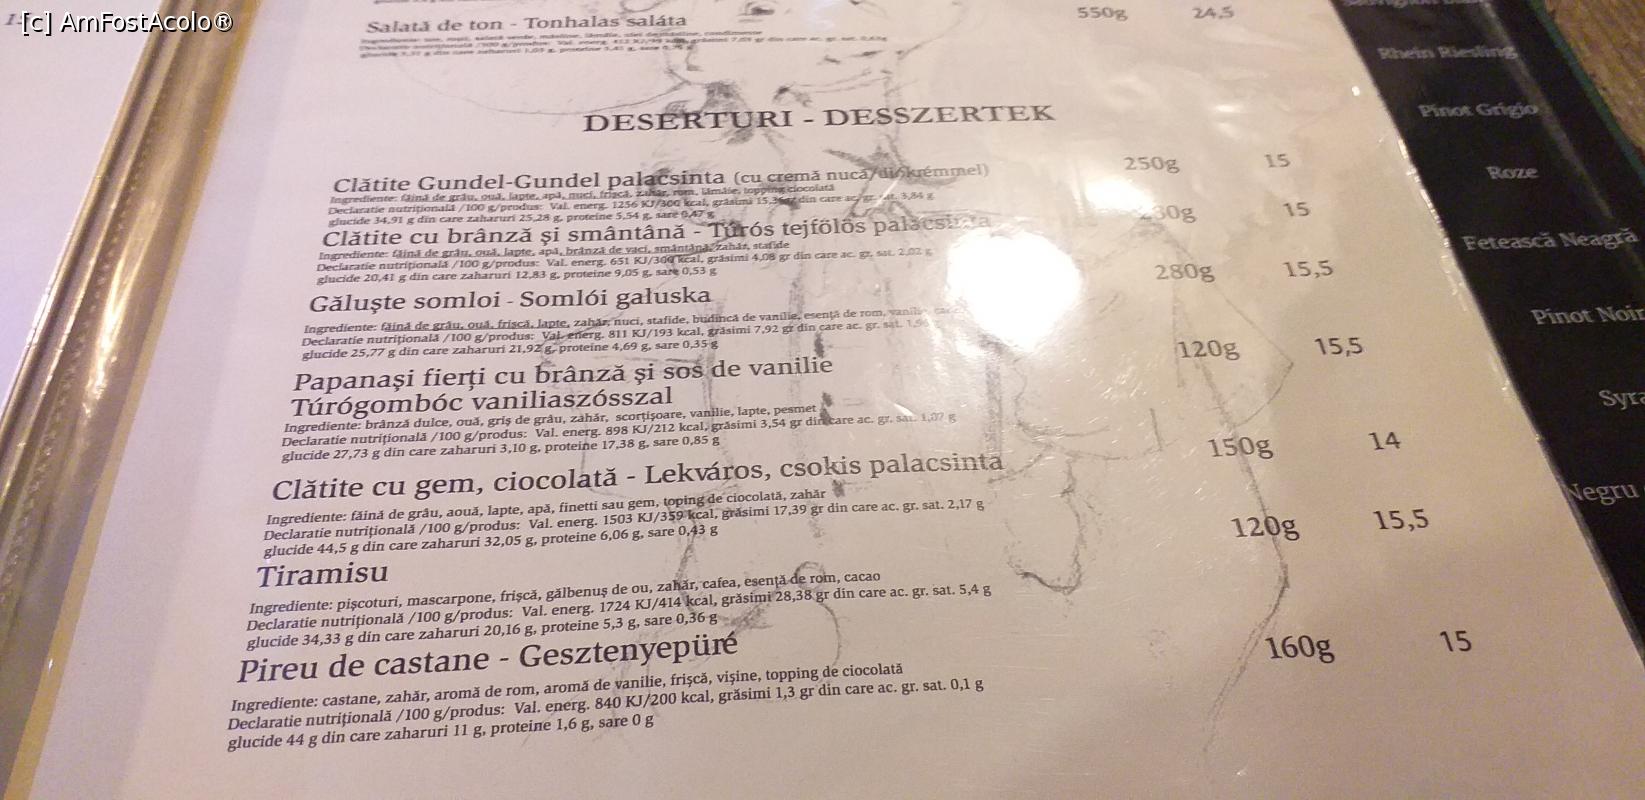 [c] AmFostAcolo®
Salată de ton - Tonhalas saláta 550g 24,5
DESERTURI - DESSZERTEK
Clătite Gundel-Gundel palacsinta (cu cremă nucă/diókrémmel) 250g 15
Ingrediente: făină de grâu, ouă, lapte, apă, nuci, frişcă, zahăr, rom, lămâie, topping ciocolată
Declaratie nutriţională /100 g/produs: Val. energ. 1256 KJ/300 kcal, grăsimi din care ac. gr. sat. 3,84 g
glucide 34,91 g din care zaharuri 25,28 g, proteine 5,54 g, sare 0,47 g
Clătite cu brânză şi smântână - Túrós tejfölös palacsinta 15
Ingrediente: făină de grâu, ouă, lapte, apă, brânză de vaci, smântână, zahăr, stafide
Declaratie nutriţională /100 g/produs: Val. energ. 651 KJ/300 kcal, grăsimi 4,08 gr din care ac. gr. sat. 2,02 g
glucide 20,41 g din care zaharuri 12,83 g, proteine 9,05 g, sare 0,53 g
Găluşte somloi - Somlói gałuska 280g 15,5
Ingrediente: făină de grâu, ouă, frişcă, lapte, zahăr, nuci, stafide, budincă de vanilie, esenţă de rom, vanilie,
Declaratie nutriţională /100 g/produs: Val. energ. 811 KJ/193 kcal, grăsimi 7,92 gr din care ac. gr. sat.
glucide 25,77 g din care zaharuri 21,92 g, proteine 4,69 g, sare 0,35 g
Papanaşi fierţi cu brânză şi sos de vanilie 120g 15,5
Túrógombóc vaniliaszósszal
Ingrediente: brânză dulce, ouă, griş de grâu, zahăr, scorţişoare, vanilie, lapte, pesmet
Declaratie nutriţională /100 g/produs: Val. energ. 898 KJ/212 kcal, grăsimi 3,54 gr din care ac. gr. sat. 1,07 g
glucide 27,73 g din care zaharuri 3,10 g, proteine 17,38 g, sare 0,85 g
Clătite cu gem, ciocolată - Lekváros, csokis palacsinta 150g 14
Ingrediente: făină de grâu, aouă, lapte, apă, finetti sau gem, toping de ciocolată, zahăr
Declaratie nutriţională /100 g/produs: Val. energ. 1503 KJ/359 kcal, grăsimi 17,39 gr din care ac. gr. sat. 2,17 g
glucide 44,5 g din care zaharuri 32,05 g, proteine 6,06 g, sare 0,43 g
Tiramisu 120g 15,5
Ingrediente: pişcoturi, mascarpone, frişcă, gălbenuş de ou, zahăr, cafea, esenţă de rom, cacao
Declaratie nutriţională /100 g/produs: Val. energ. 1724 KJ/414 kcal, grăsimi 28,38 gr din care ac. gr. sat. 5,4 g
glucide 34,33 g din care zaharuri 20,16 g, proteine 5,3 g, sare 0,36 g
Pireu de castane - Gesztenyepüré 160g 15
Ingrediente: castane, zahăr, aromă de rom, aromă de vanilie, frişcă, vişine, topping de ciocolată
Declaratie nutriţională /100 g/produs: Val. energ. 840 KJ/200 kcal, grăsimi 1,3 gr din care ac. gr. sat. 0,1 g
glucide 44 g din care zaharuri 11 g, proteine 1,6 g, sare 0 g
Rhein Riesling
Pinot Grigio
Roze
Fetească Neagră
Pinot Noir
Negru